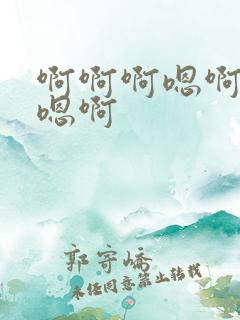 啊啊啊嗯啊
嗯啊
郭寄峤
未经同意禁止转载